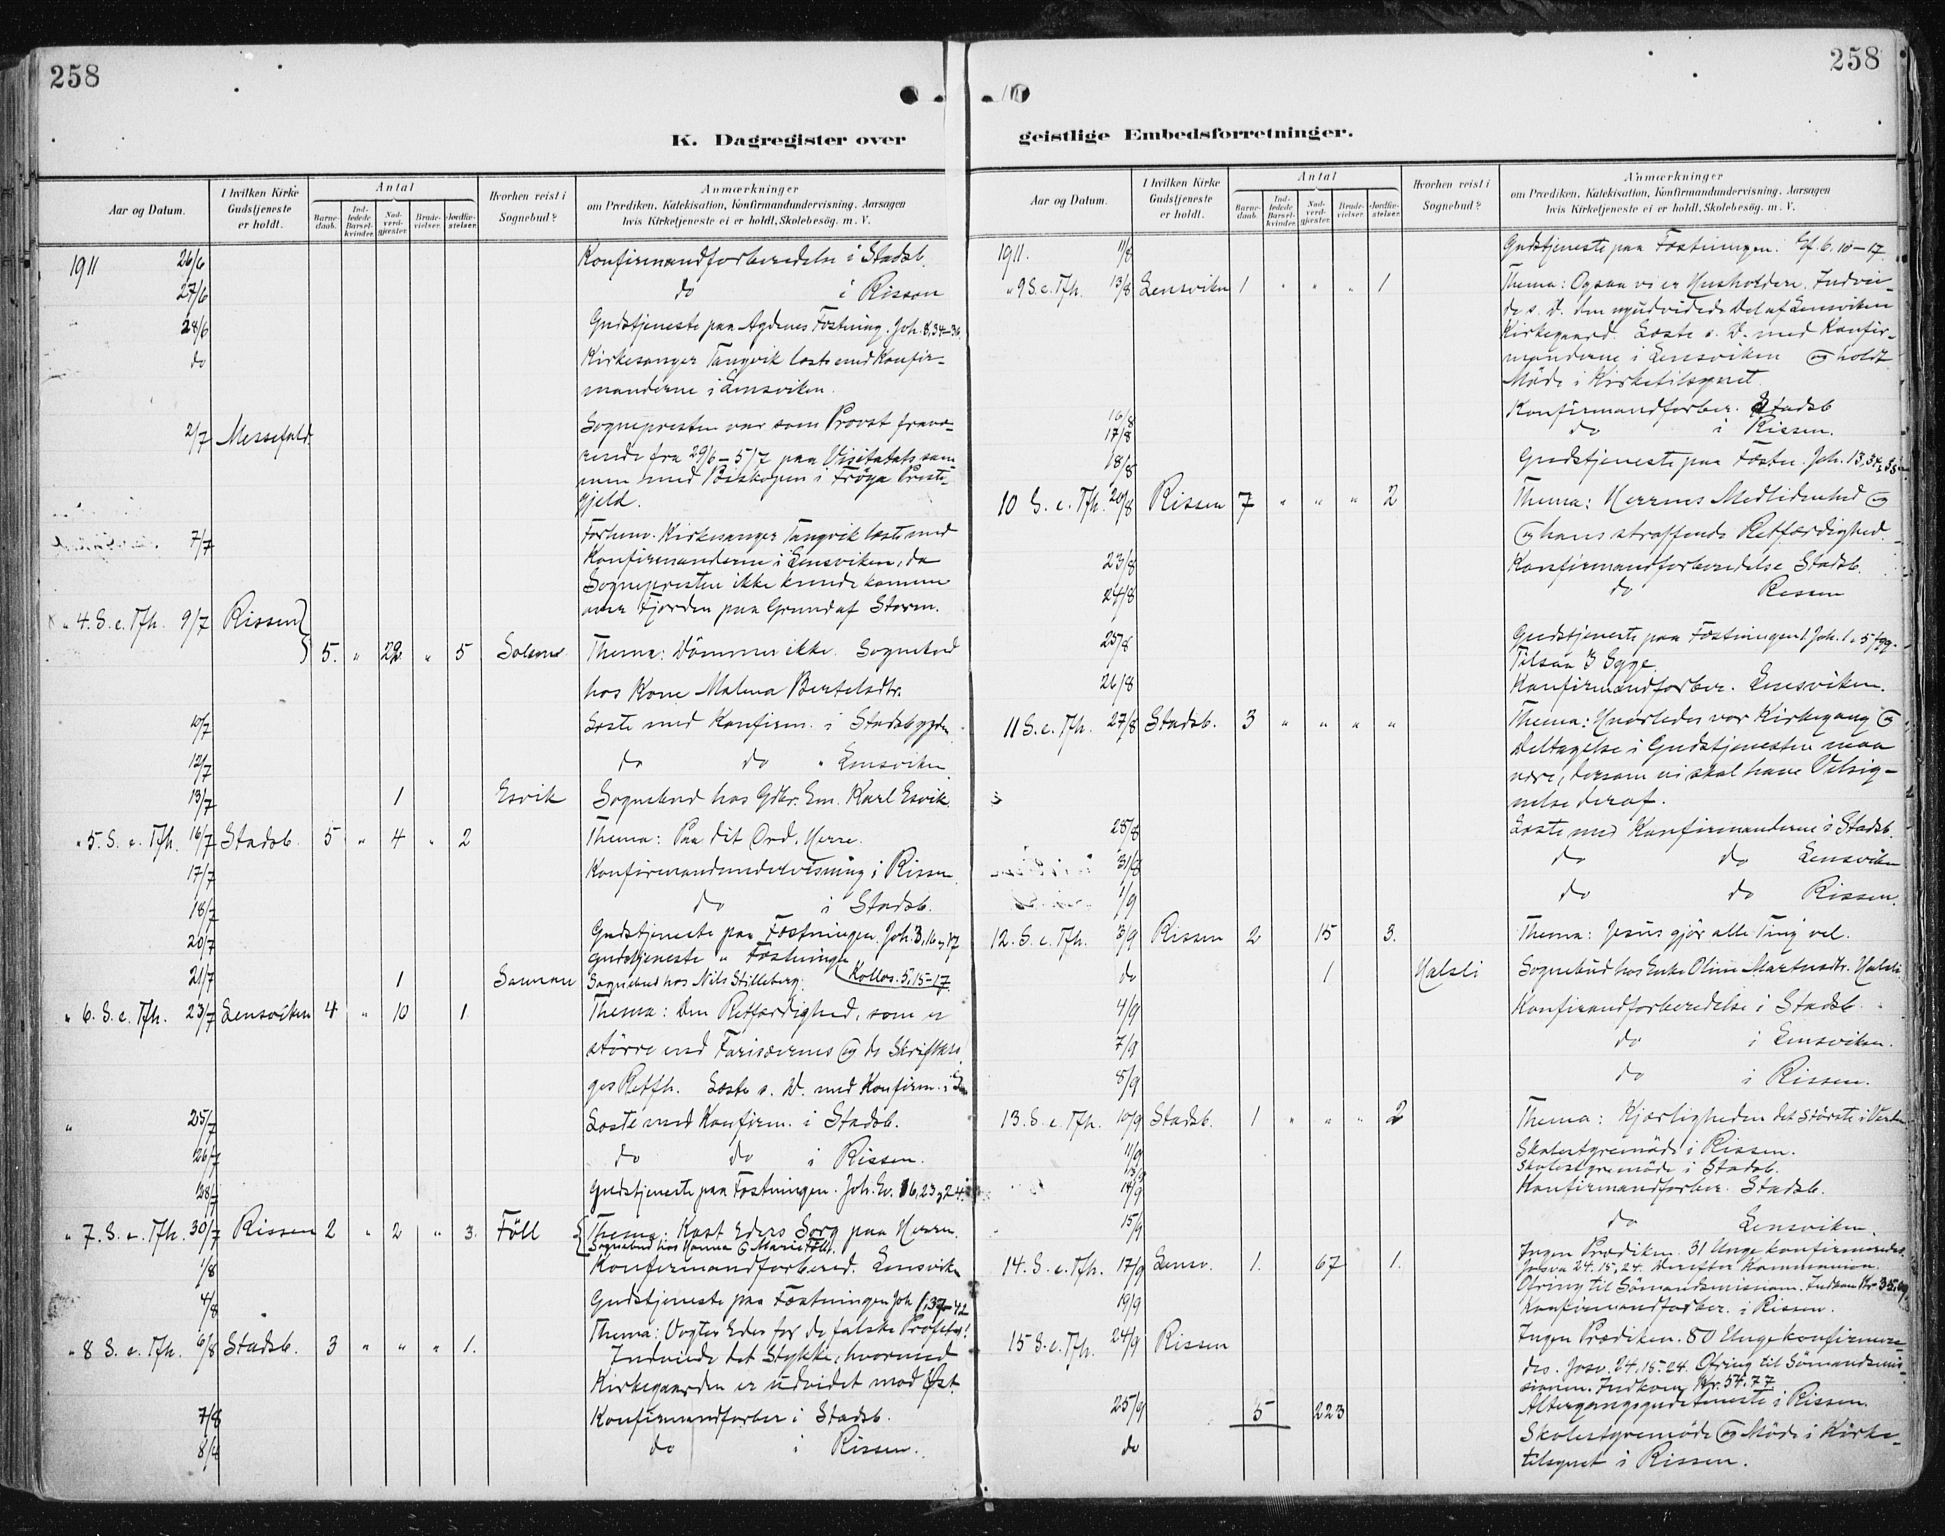 258
258
K. Dagregister over
geistlige Embedsforretninger.
Aar og Datum.
I hvilken Kirke Gudstjeneste er holdt.
Antal
Barnedaab.
Indledede Barselkvinder.
Nadverdgjester.
Brudevielser.
Jordfæstelser.
Hvorhen reist i Sognebud?
Anmærkninger
om Prædiken, Katekisation, Konfirmandundervisning, Aarsagen
hvis Kirketjeneste ei er holdt, Skolebesøg. m. V.
1911 26/6 Konfirmandforberedelse i Stadsb.
27/6 do i Rissen
28/6 Gudstjeneste paa Agdenes Fæstning. Joh. 8,34-36
do Kirkesanger Tangvik læste med Konfir-
manderne i Lensviken.
2/7 Messefald Sognepresten var som Provst fravæ-
rende fra 29/6-5/7 paa Visitats sam-
men med Biskopen i Frøya Preste-
gjeld.
7/7 Forhenv. Kirkesanger Tangvik læste med
Konfirmanderne i Lensviken, da
Sognepresten ikke kunde komme
over Fjorden paa Grund af Storm.
4. S. e. Tfh. 9/7 Rissen
5. " 22 " 5 Thema: Dömmer ikke. Sognebud
hos Kone Malena Bertelsdtr.
10/7 Læste med Konfirm. i Stadsbygden
12/7 do do " Lensviken
13/7 1 Esvik Sognebud hos Gdbr. Em. Karl Esvik.
" 5. S. e. Tfh. 16/7 Stadsb. 5 " 4 " 2 Thema: Paa dit Ord, Herre.
17/7 Konfirmandundervisning i Rissen
18/7 do i Stadsb.
20/7 Gudstjeneste paa Fæstningen. Joh. 3,16, 17
Gudstjeneste " Fæstningen
21/7 1 Sognebud hos Nils Stilleberg. Kollos. 5,15-17.
" 6. S. e. Tfh. 23/7 Lensviken 4 " 10 1 Thema: Den Retfærdighed, som er
större end Farisæernes og de Skriftklo-
ges Retfh. Læste s. D. med Konfirm. i
" 25/7 Læste med Konfirm. i Stadsb.
26/7 do do i Rissen.
28/7 Gudstjeneste paa Fæstningen. Joh. Ev. 16,23, 24.
" 7. S. e. Tfh. 30/7 Rissen 2 " 2 " 3. Föll Thema: Kast Eders Sorg paa Herren.
Sognebud hos Hanna Marie Föll.
1/8 Konfirmandforbered. Lensviken
4/8 Gudstjeneste paa Fæstningen Joh 1,37-42
Thema: Vogter Eder for de falske Profeter!
" 8 S. e. Tfh. 6/8 Stadsb. 3 " " " 1. Indviede det Stykke, hvormed
Kirkegaarden er udvidet mod Øst.
7/8 Konfirmandforber i Stadsb.
8/8 do i Rissen.
Aar og Datum.
I hvilken Kirke Gudstjeneste er holdt.
Antal
Barnedaab.
Indledede Barselkvinder.
Nadverdgjester.
Brudevielser.
Jordfæstelser.
Hvorhen reist i Sognebud?
Anmærkninger
om Prædiken, Katekisation, Konfirmandundervisning, Aarsagen
hvis Kirketjeneste ei er holdt, Skolebesøg. m. V.
1911. 11/8 Gudstjeneste paa Fæstningen. Ef. 6. 10-17.
" 9 S. e. Tfh. 13/8 Lensviken 1 " " " 1 Thema: Ogsaa vi er Husholdere. Indvie-
de s. D. den nyudvidede Del af Lensviken
Kirkegaard. Læste s. D. med Konfir-
manderne i Lensviken og holdt
Möde i Kirketilsynet.
16/8 Konfirmandforber. Stadsb
17/8 do i Rissen.
18/8 Gudstjeneste paa Fæstn. Joh. 13,34, 35
10 S. e. Tfh. 20/8 Rissen 7 " " " 2 Thema: Herrens Medlidenhed og
og hans straffende Retfærdighed.
23/8 Konfirmandforberedelse Stadsb.
24/8 do Rissen
25/8 Gudstjeneste paa Fæstningen 1 Joh. 1.
Tilsaa 3 Syge.
26/8 Konfirmandforber. Lensviken.
11 S. e. Tfh. 27/8 Stadsb. 3 " " " " Thema: Hvorledes vor Kirkegang og
Deltagelse i Gudstjenesten maa
være, dersom vi skal have Velsig-
nelse deraf.
28/8 Læste med Konfirmanderne i Stadsb.
31/8 do do Lensviken
1/9 do do Rissen.
12. S. e. Tfh. 3/9 Rissen 2 15 3. Thema: Jesus gjör alle Ting vel.
do 1 Halsli Sognebud hos Enke Oline Martinsdtr. Halsli
4/9 Konfirandforberedelse i Stadsb.
7/9 do i Lensviken.
8/9 do i Rissen.
13. S. e. Tfh. 10/9 Stadsb. 1 " " " 2 Thema: Kjærligheden det Störste i Verden
11/9 Skolestyremöde i Rissen.
Skolestyremöde i Stadsb.
14/9 Konfirmandforber. Stadsb.
15/9 do Lensviken
14. S. e. Tfh. 17/9 Lensv. 1. 67 1. Ingen Prædiken. 31 Unge konfirmeredes.
Josva 24.15,24. Derefter Kommunion.
Ofring til Sömandsmissionen. Indkom Kr
19/9 Konfirmandforber. i Rissen.
15 S. e. Tfh. 24/9 Rissen Ingen Prædiken. 50 Unge konfirmere-
des. Josv. 24,15-24. Ofring til Sömandsmis-
sionen. Indkom Kr. 54.77
25/9 5 223 Altergangsgudstjeneste i Rissen.
do Skolestyremöde og Möde i Kirke-
tilsynet i Rissen.